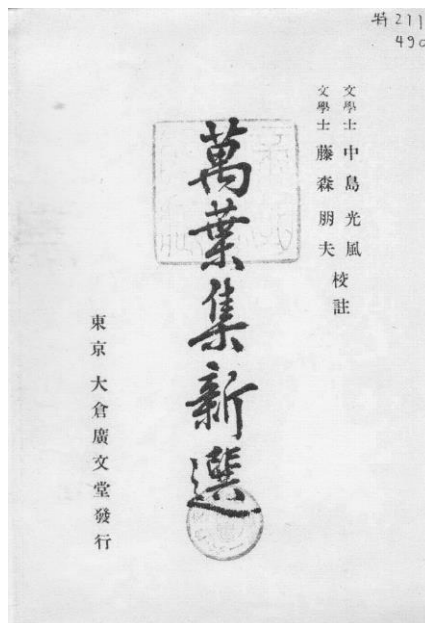 特211
490
文學士 中島光風
文學士 藤森朋夫
校註
萬葉集新選
東京 大倉廣文堂發行